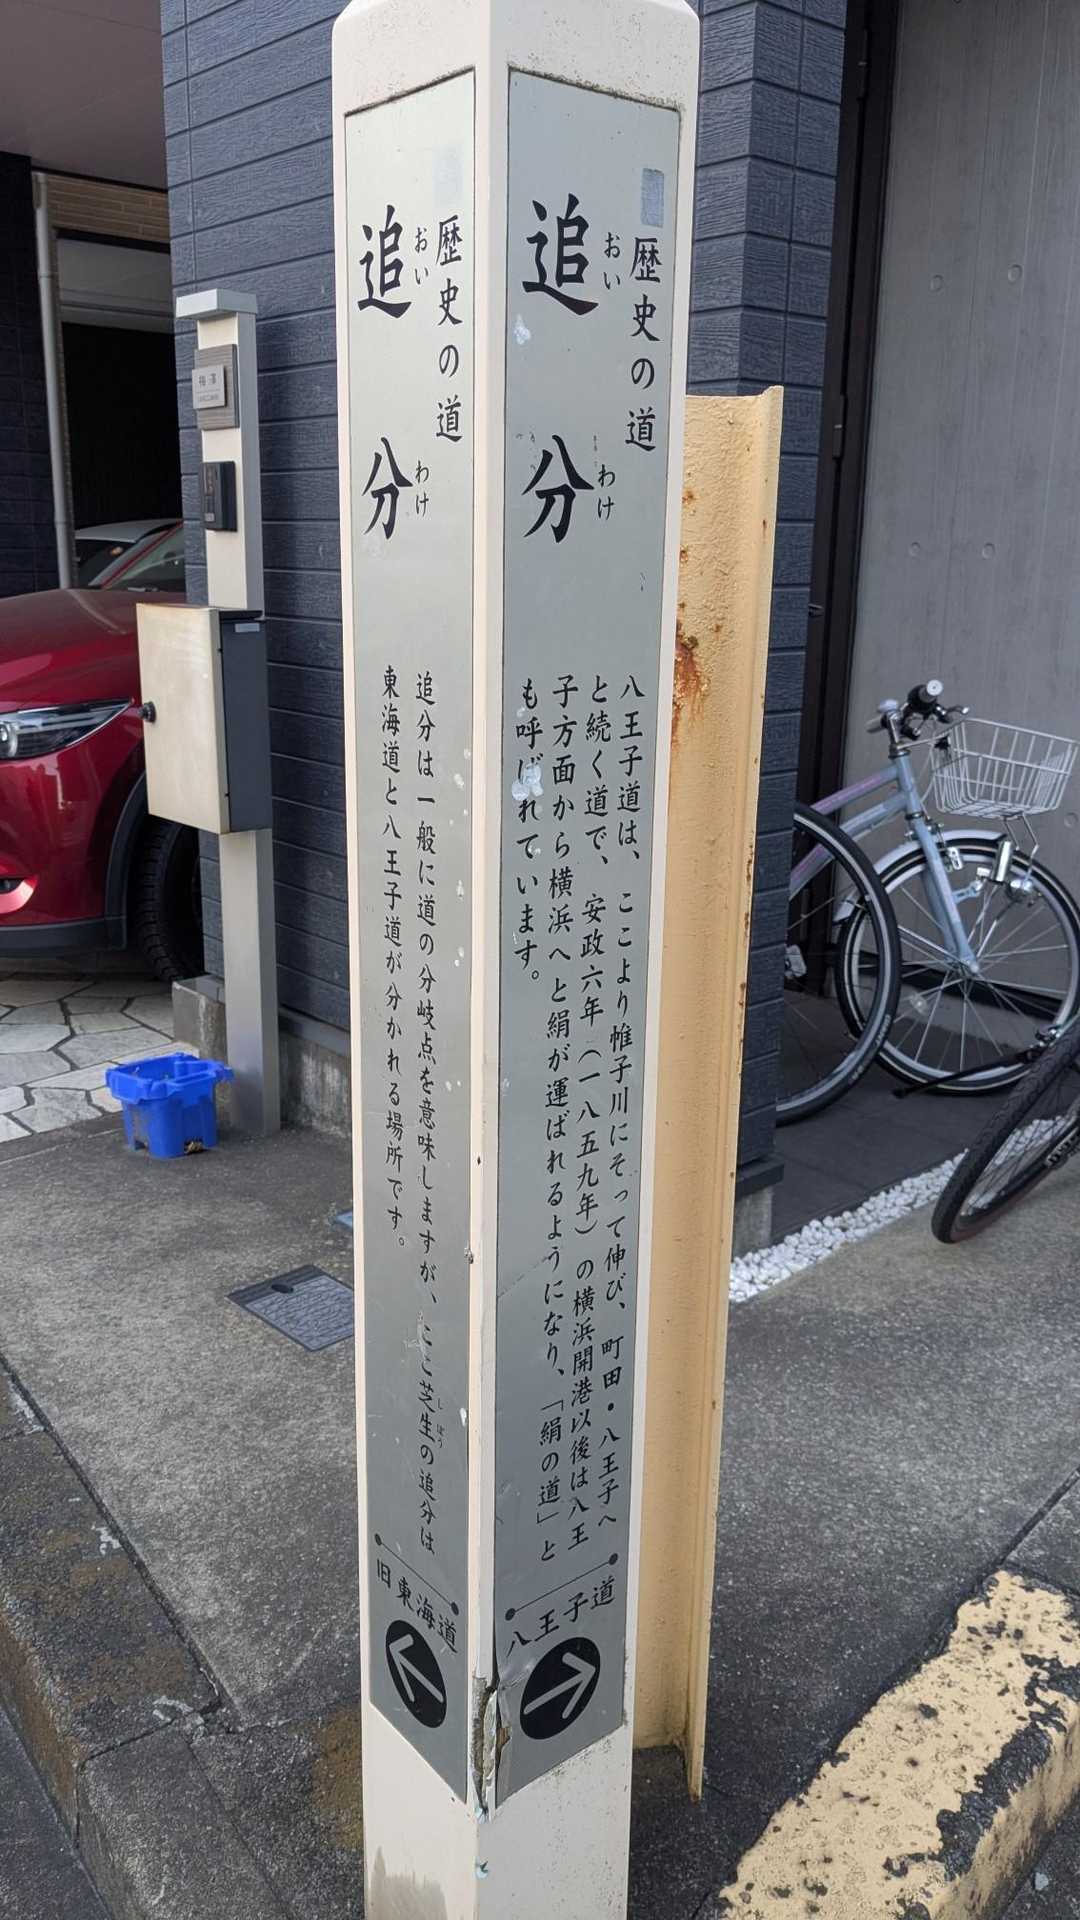 歴史の道
追分
おいわけ
八王子道は、ここより帷子川にそって伸び、町田・八王子へ
と続く道で、安政六年（一八五九年）の横浜開港以後は八王
子方面から横浜へと絹が運ばれるようになり、「絹の道」と
も呼ばれています。
八王子道
歴史の道
追分
おいわけ
追分は一般に道の分岐点を意味しますが、ここ芝生の追分は
しぼう
東海道と八王子道が分かれる場所です。
旧東海道